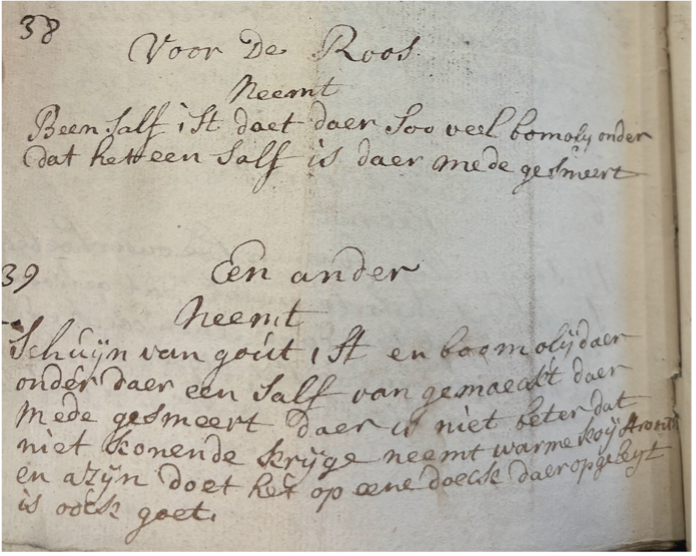 38
Voor De Roos
Neemt
Been Salf 1 St doet daer Soo veel bomolij onder
dat het een Salf is daer mede gesmeert
39
Een ander
Neemt
Schuijn van goút 1 St en boomolij daer
onder daer een Salf van gemaeckt daer
mede gesmeert daer is niet beter dat
niet konende krijge neemt warme koij stront
en azijn doet het op eene doeck daer opgeleyt
is oock goet.